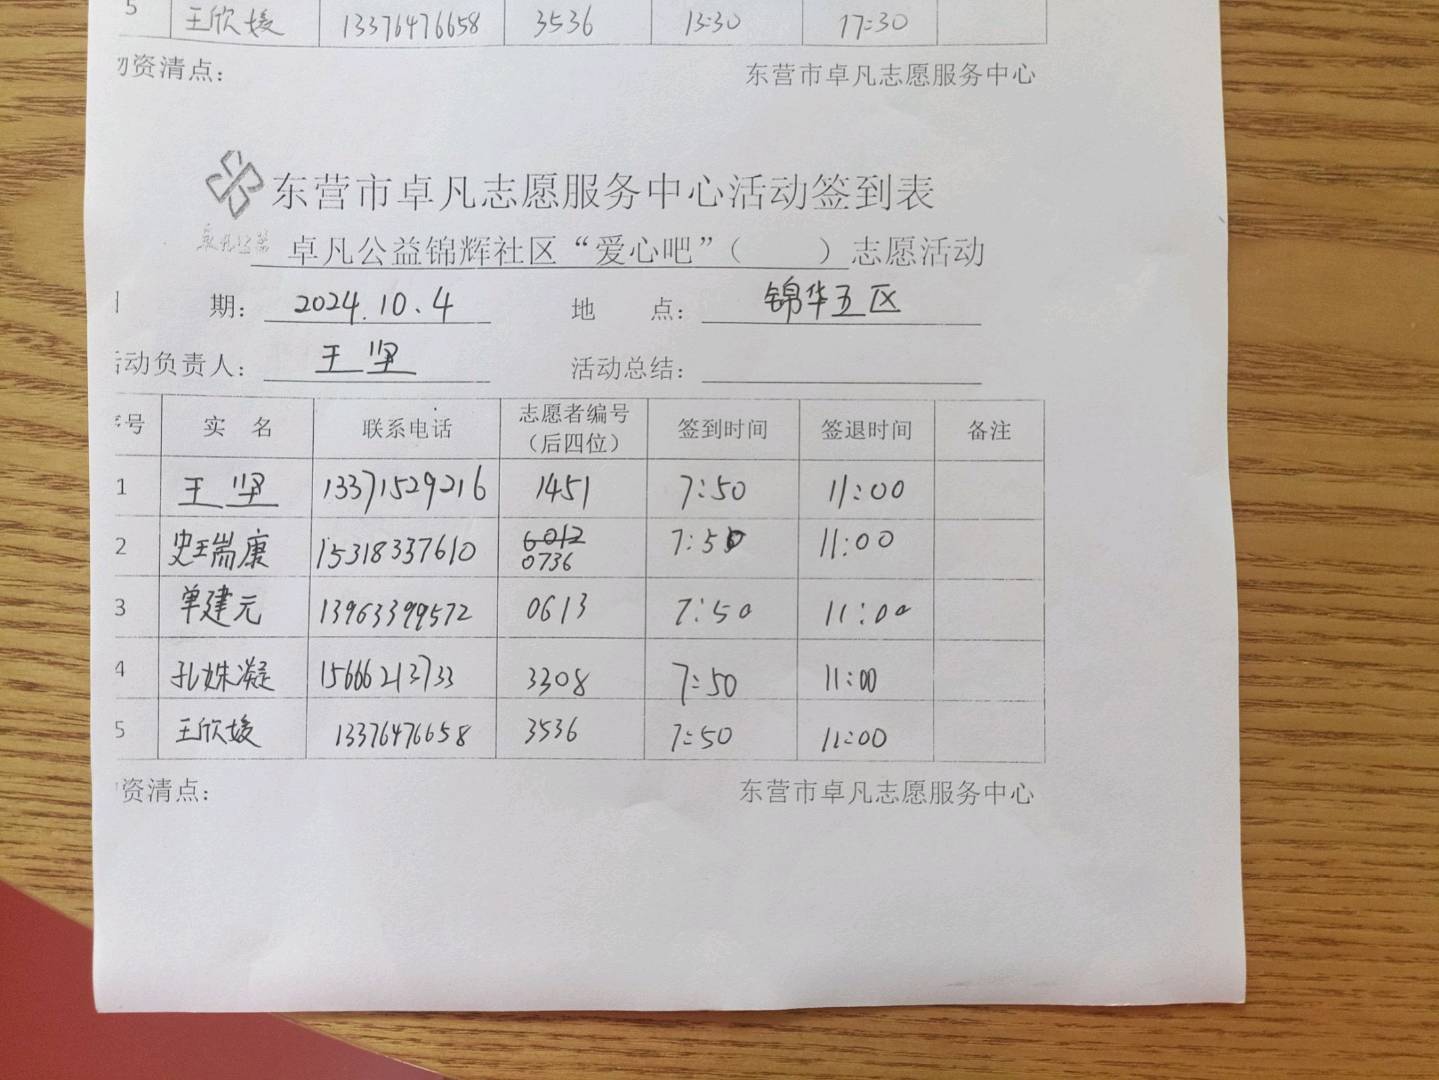 5 王欣媛 13376476658 3536 13:30 17:30
资清点： 东营市卓凡志愿服务中心
东营市卓凡志愿服务中心活动签到表
卓凡公益
卓凡公益锦辉社区“爱心吧”（ ）志愿活动
期： 2024.10.4 地 点： 锦华五区
动负责人： 王坚 活动总结：
号 实 名 联系电话 志愿者编号（后四位） 签到时间 签退时间 备注
1 王坚 13371529216 1451 7:50 11:00
2 史瑞康 15318337610 6012 0736 7:50 11:00
3 单建元 13963399572 0613 7:50 11:00
4 孔姝凝 15666213733 3308 7:50 11:00
5 王欣媛 13376476658 3536 7:50 11:00
资清点： 东营市卓凡志愿服务中心